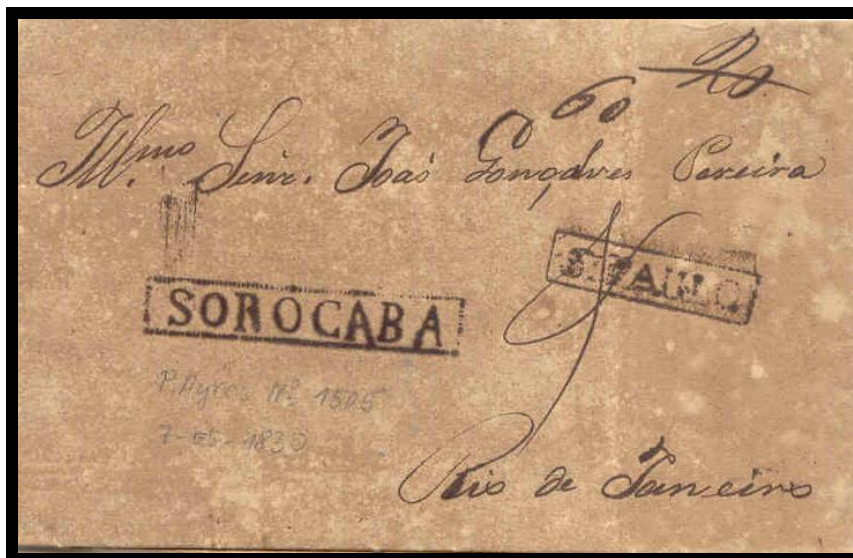 60 Rs.
Illmo Senr. João Gonçalves Pereira
S. PAULO
SOROCABA
P. Ayres Nº 1505
7-05-1830
Rio de Janeiro